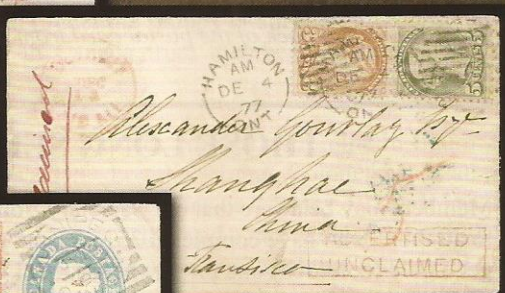 HAMILTON
AM
DE 4
77
ONT
AM
DE
5
Alexander Gourlay Esqr
Shanghae
China
Fransisco
ADVERTISED
UNCLAIMED
CANADA POSTAGE